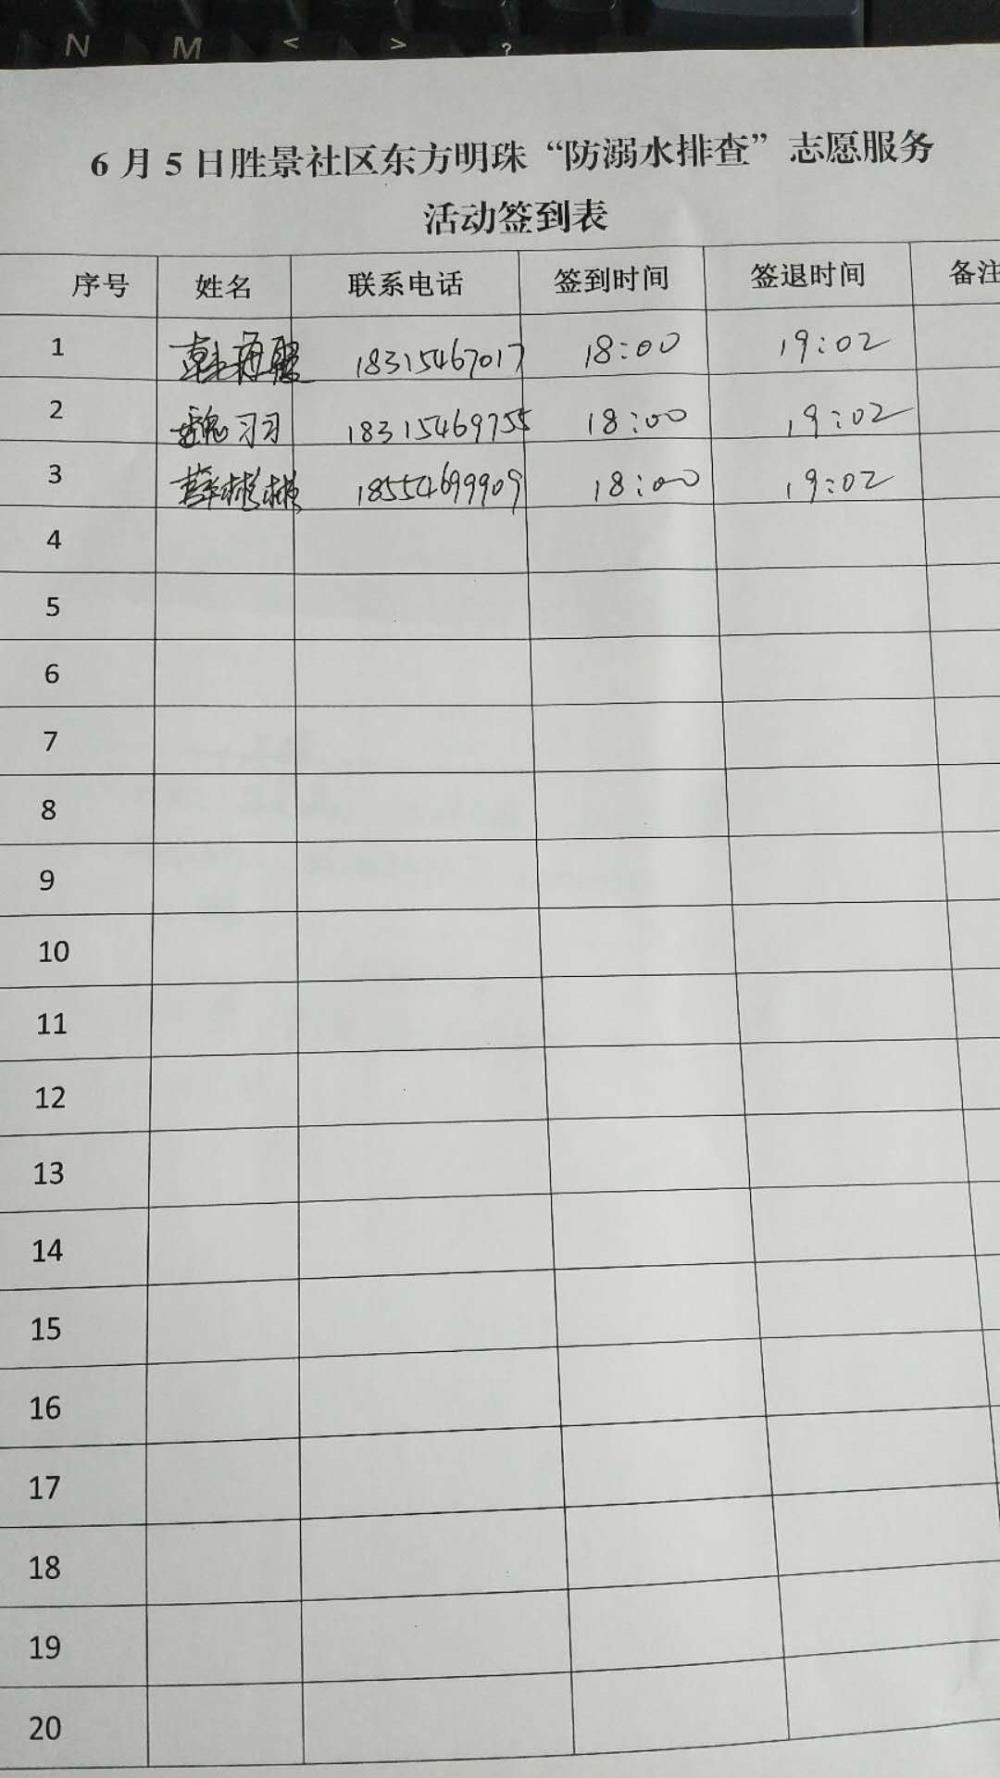 N M < > ?
6月5日胜景社区东方明珠“防溺水排查”志愿服务
活动签到表
序号 姓名 联系电话 签到时间 签退时间 备注
1 18315467017 18:00 19:02
2 魏羽 18315469755 18:00 19:02
3 薛彬彬 18554699909 18:00 19:02
4
5
6
7
8
9
10
11
12
13
14
15
16
17
18
19
20